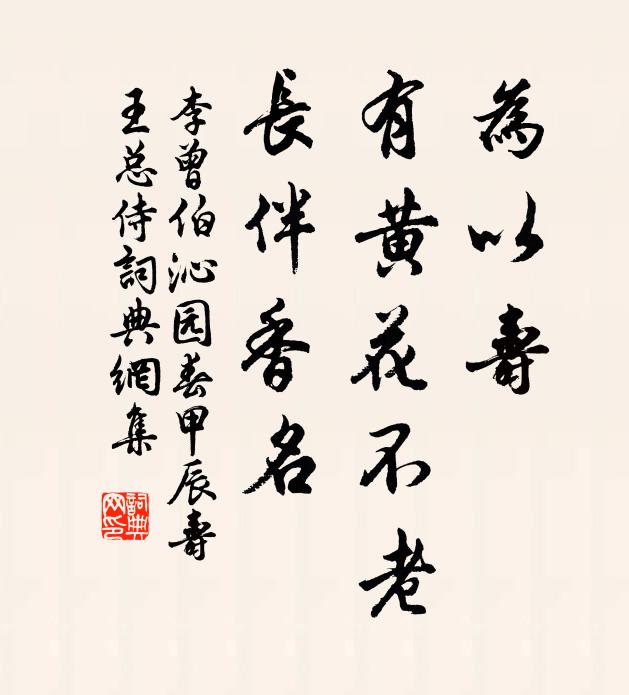 為以壽
有黄花不老
長伴香名
李曾伯沁园春甲辰壽
王总侍詞典網集
詞典网印